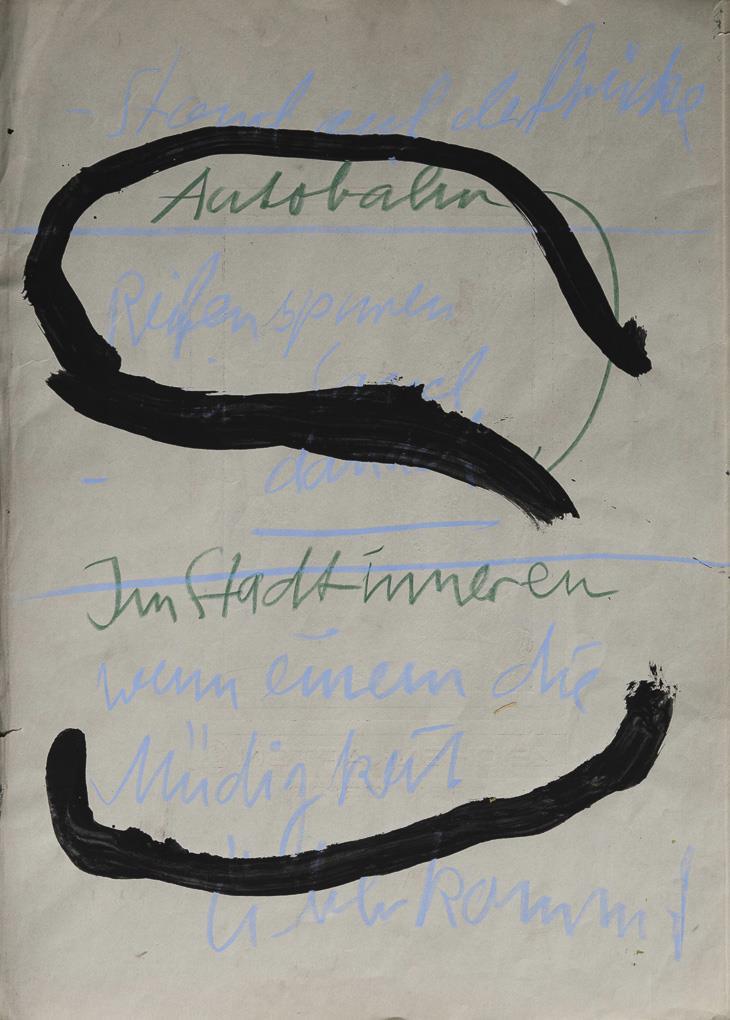 - Stand auf der Brücke
Autobahn
Reifenspuren
-
Im Stadtinneren
wenn einem die
Müdigkeit
überkommt